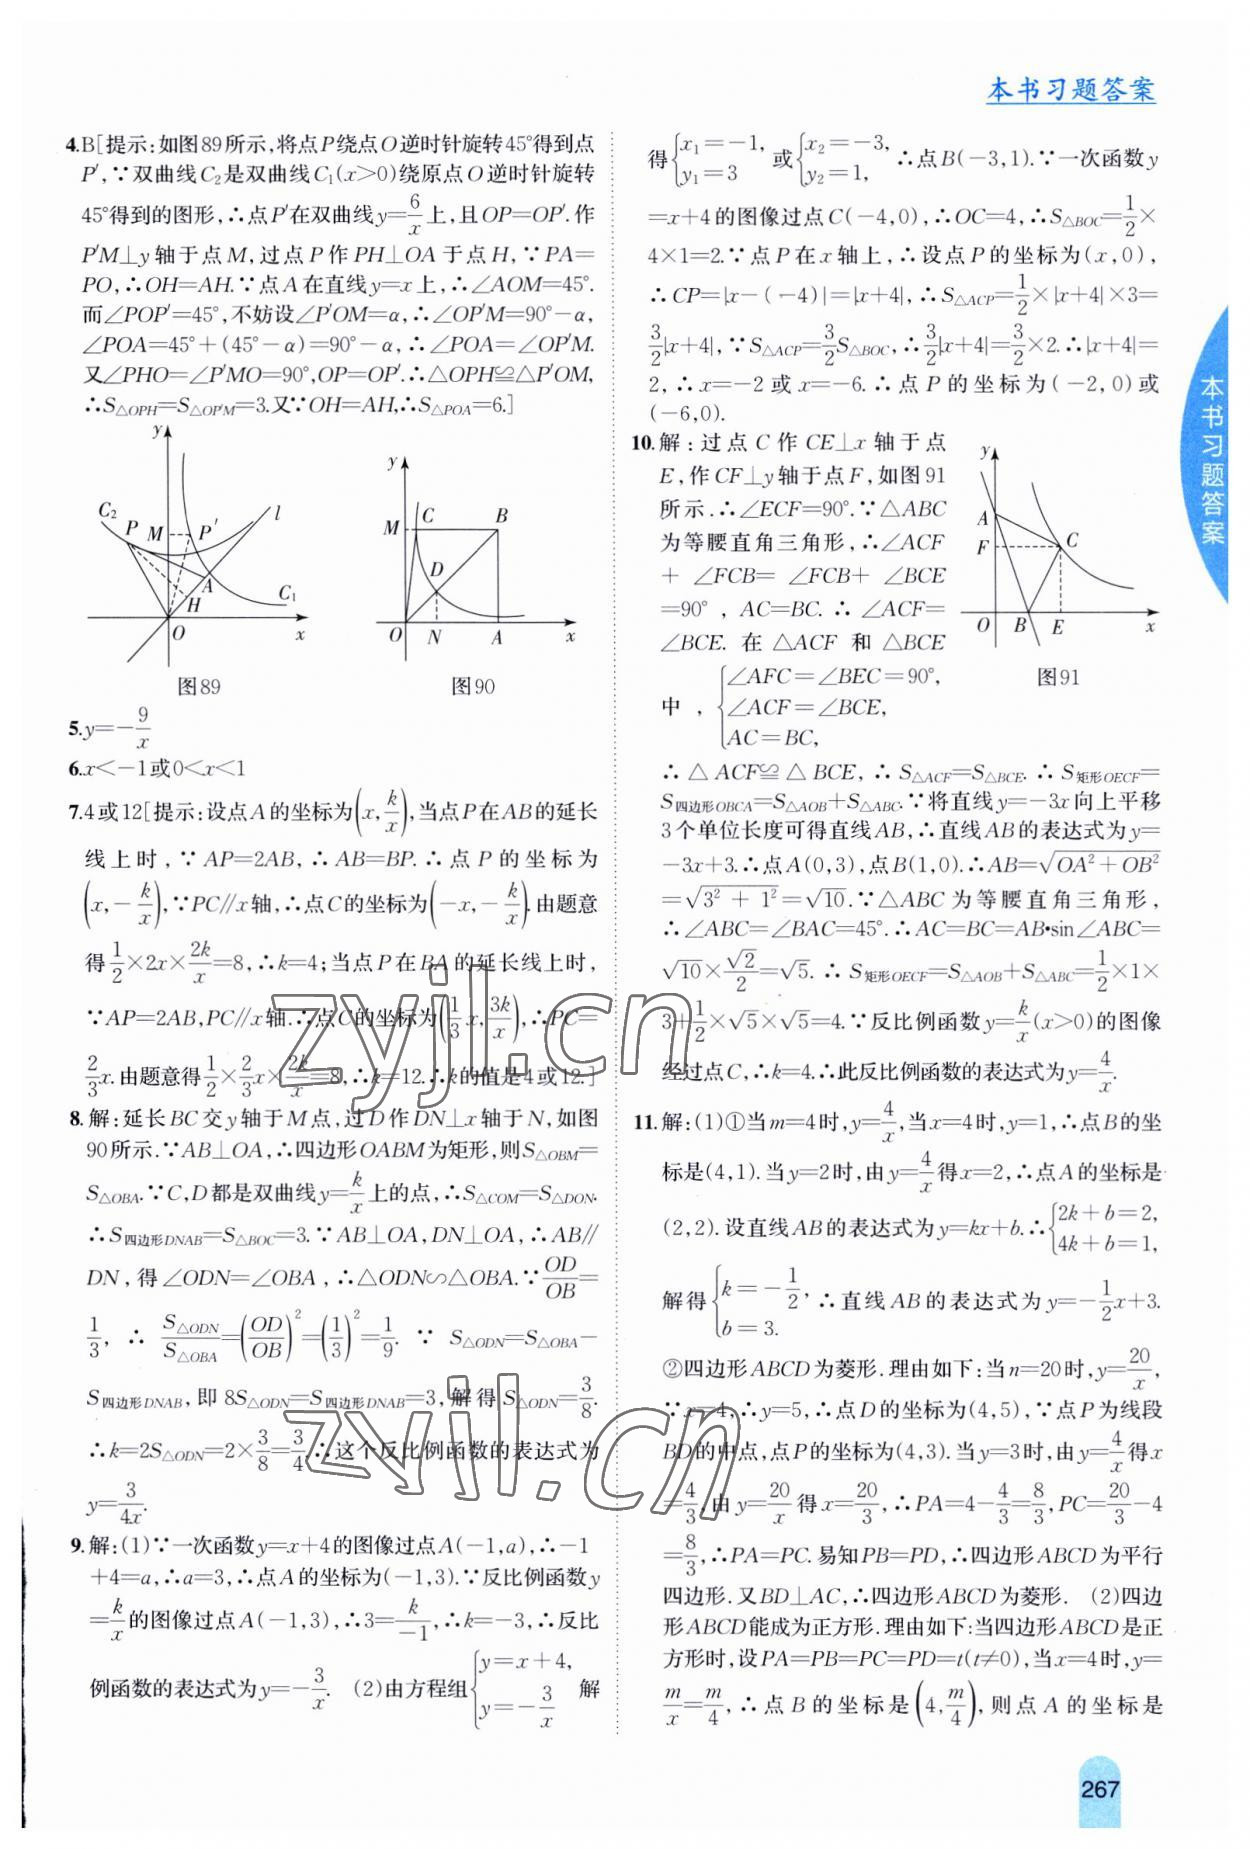 本书习题答案
4.B[提示:如图89所示,将点P绕点O逆时针旋转45°得到点
P′,∵双曲线C₂是双曲线C₁(x>0)绕原点O逆时针旋转
45°得到的图形,∴点P′在双曲线y=6/x上,且OP=OP′.作
P′M⊥y轴于点M,过点P作PH⊥OA于点H,∵PA=
PO,∴OH=AH.∵点A在直线y=x上,∴∠AOM=45°.
而∠POP′=45°,不妨设∠P′OM=α,∴∠OP′M=90°-α,
∠POA=45°+(45°-α)=90°-α,∴∠POA=∠OP′M.
又∠PHO=∠P′MO=90°,OP=OP′.∴△OPH≌△P′OM,
∴S△OPH=S△OP′M=3.又∵OH=AH,∴S△POA=6.]
y
C₂ P M P′ l
A
H C₁
O x
图89
y
M C B
D
O N A x
图90
5.y=-9/x
6.x<-1或0<x<1
7.4或12[提示:设点A的坐标为(x,k/x),当点P在AB的延长
线上时,∵AP=2AB,∴AB=BP.∴点P的坐标为
(x,-k/x),∵PC∥x轴,∴点C的坐标为(-x,-k/x).由题意
得1/2×2x×2k/x=8,∴k=4;当点P在BA的延长线上时,
∵AP=2AB,PC∥x轴.∴点C的坐标为(1/3x,3k/x),∴PC=
2/3x.由题意得1/2×2/3x×2k/x=8,∴k=12.∴k的值是4或12.]
8.解:延长BC交y轴于M点,过D作DN⊥x轴于N,如图
90所示.∵AB⊥OA,∴四边形OABM为矩形,则S△OBM=
S△OBA.∵C,D都是双曲线y=k/x上的点,∴S△COM=S△DON.
∴S四边形DNAB=S△BOC=3.∵AB⊥OA,DN⊥OA,∴AB∥
DN,得∠ODN=∠OBA,∴△ODN∽△OBA.∵OD/OB=
1/3,∴S△ODN/S△OBA=(OD/OB)²=(1/3)²=1/9.∵S△ODN=S△OBA-
S四边形DNAB,即8S△ODN=S四边形DNAB=3,解得S△ODN=3/8.
∴k=2S△ODN=2×3/8=3/4,∴这个反比例函数的表达式为
y=3/4x.
9.解:(1)∵一次函数y=x+4的图像过点A(-1,a),∴-1
+4=a,∴a=3,∴点A的坐标为(-1,3).∵反比例函数y
=k/x的图像过点A(-1,3),∴3=k/-1,∴k=-3,∴反比
例函数的表达式为y=-3/x. (2)由方程组{y=x+4, y=-3/x 解
得{x₁=-1, y₁=3 或{x₂=-3, y₂=1, ∴点B(-3,1).∵一次函数y
=x+4的图像过点C(-4,0),∴OC=4,∴S△BOC=1/2×
4×1=2.∵点P在x轴上,∴设点P的坐标为(x,0),
∴CP=|x-(-4)|=|x+4|,∴S△ACP=1/2×|x+4|×3=
3/2|x+4|,∵S△ACP=3/2S△BOC,∴3/2|x+4|=3/2×2.∴|x+4|=
2,∴x=-2或x=-6.∴点P的坐标为(-2,0)或
(-6,0).
10.解:过点C作CE⊥x轴于点
E,作CF⊥y轴于点F,如图91
所示.∴∠ECF=90°.∵△ABC
为等腰直角三角形,∴∠ACF
+∠FCB=∠FCB+∠BCE
=90°,AC=BC.∴∠ACF=
∠BCE.在△ACF和△BCE
中,{∠AFC=∠BEC=90°, ∠ACF=∠BCE, AC=BC,
y
A
F C
O B E x
图91
∴△ACF≌△BCE,∴S△ACF=S△BCE.∴S矩形OECF=
S四边形OBCA=S△AOB+S△ABC.∵将直线y=-3x向上平移
3个单位长度可得直线AB,∴直线AB的表达式为y=
-3x+3.∴点A(0,3),点B(1,0).∴AB=√(OA²+OB²)
=√(3²+1²)=√10.∵△ABC为等腰直角三角形,
∴∠ABC=∠BAC=45°.∴AC=BC=AB•sin∠ABC=
√10×√2/2=√5.∴S矩形OECF=S△AOB+S△ABC=1/2×1×
3+1/2×√5×√5=4.∵反比例函数y=k/x(x>0)的图像
经过点C,∴k=4.∴此反比例函数的表达式为y=4/x.
11.解:(1)①当m=4时,y=4/x,当x=4时,y=1,∴点B的坐
标是(4,1).当y=2时,由y=4/x得x=2,∴点A的坐标是
(2,2).设直线AB的表达式为y=kx+b.∴{2k+b=2, 4k+b=1,
解得{k=-1/2, b=3. ∴直线AB的表达式为y=-1/2x+3.
②四边形ABCD为菱形.理由如下:当n=20时,y=20/x,
∵x=4,∴y=5,∴点D的坐标为(4,5),∵点P为线段
BD的中点,点P的坐标为(4,3).当y=3时,由y=4/x得x
=4/3,由y=20/x得x=20/3,∴PA=4-4/3=8/3,PC=20/3-4
=8/3,∴PA=PC.易知PB=PD,∴四边形ABCD为平行
四边形.又BD⊥AC,∴四边形ABCD为菱形. (2)四边
形ABCD能成为正方形.理由如下:当四边形ABCD是正
方形时,设PA=PB=PC=PD=t(t≠0),当x=4时,y=
m/x=m/4,∴点B的坐标是(4,m/4),则点A的坐标是
本书习题答案
267
zyjl.cn
zyjl.cn